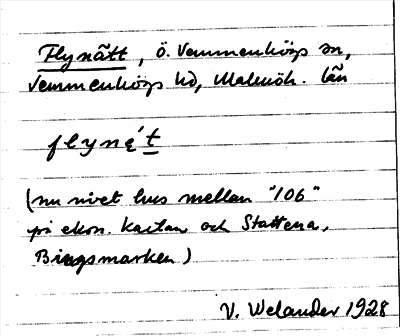 Flynätt, Ö. Vemmenhögs sn,
Vemmenhögs hd, Malmöh. län
flynä́t
(nu rivet hus mellan "106"
på ekon. kartan och Stattena,
Bingsmarken)
V. Welander 1928